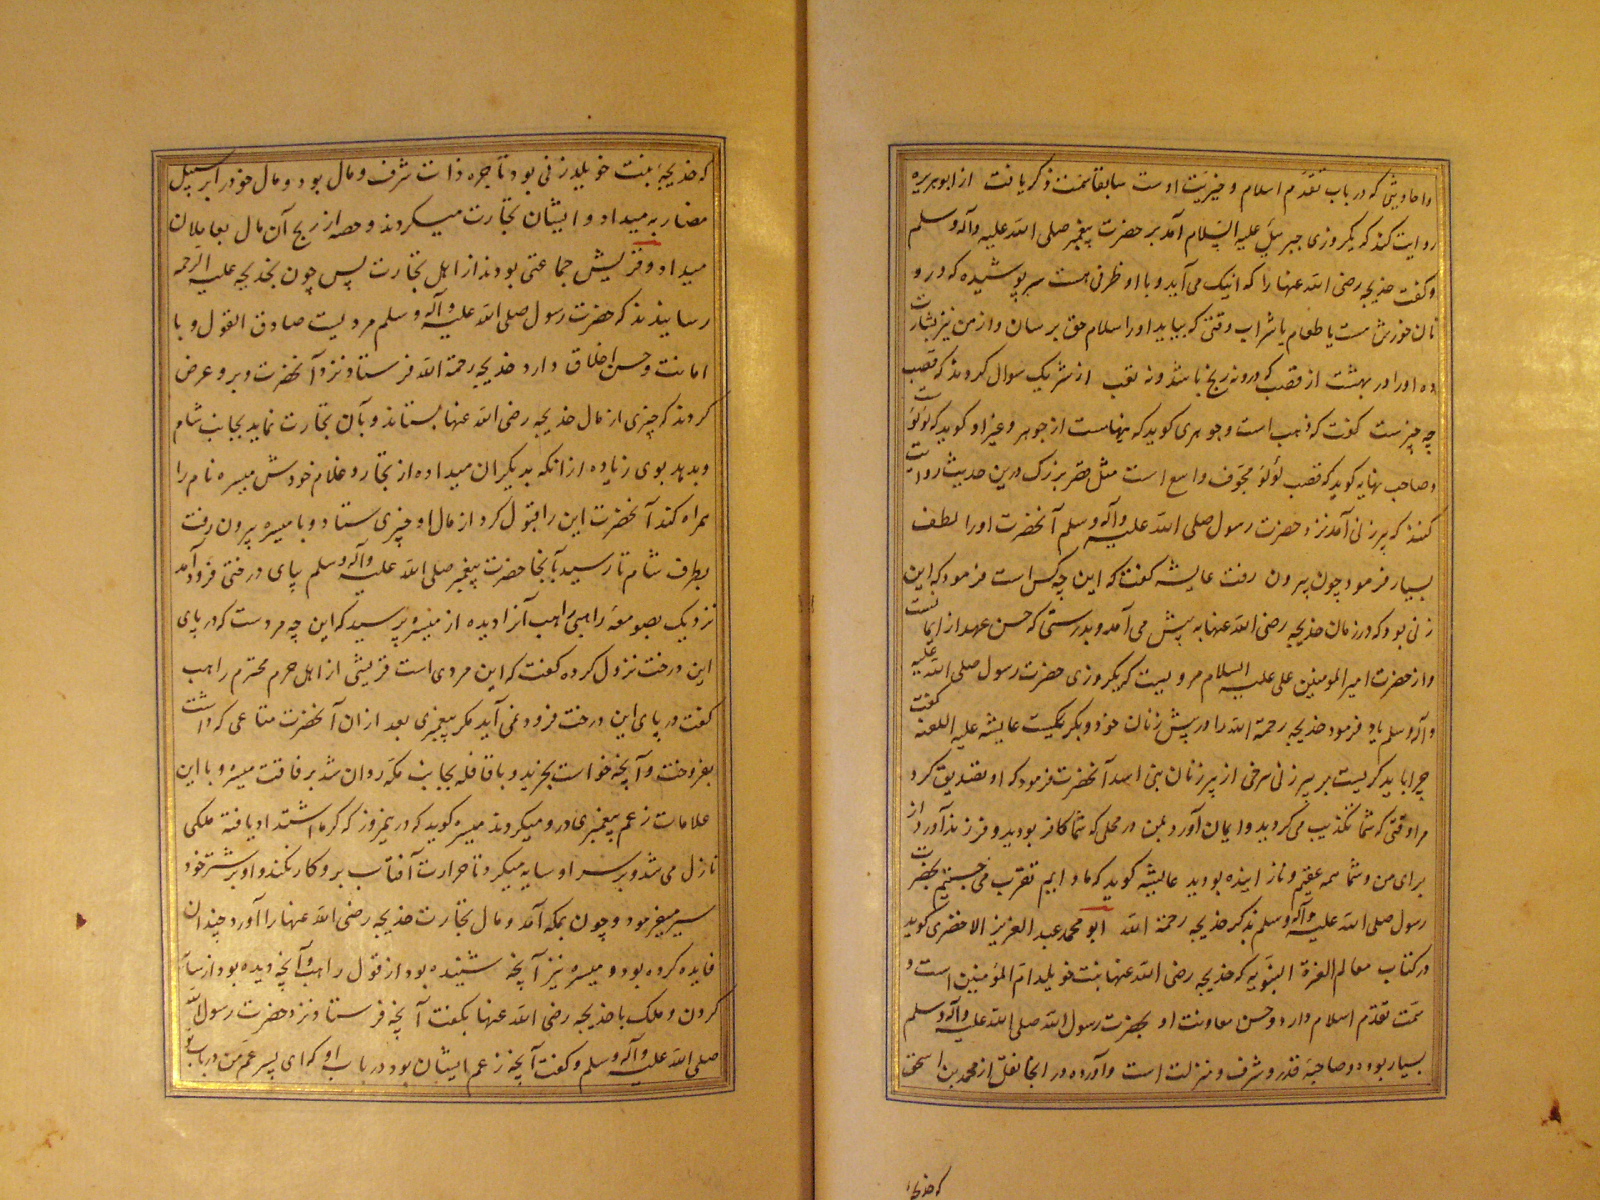 و احادیثی که در باب تقدّم اسلام و خیریّت اوست سابقا سمت ذکر یافت از ابوهریره
روایت کند که یکروزی جبرئیل علیه السّلام آمد بر حضرت پیغمبر صلی الله علیه وآله وسلم
و گفت خدیجه رضی الله عنها را که اینک می آید و با او ظرفی هست سرپوشیده که در و
نان خورش هست یا طعام یا شراب وقتی که بیاید او را سلام حق برسان و از من نیز بشارت
ده او را در بهشت از قصب که درو نه رنج باشد و نه تعب از شریک سوال کردند که قصب
چه چیزست گفت که ذهب است و جوهری گوید که از جوهر و غیر او گوید که لؤلؤست
و صاحب نهایه گوید که قصب لؤلؤ مجوّف واسع است مثل قصر بزرگ درین حدیث روایت
کنند که پیرزنی آمد نزد حضرت رسول صلی الله علیه وآله وسلم آنحضرت او را لطف
بسیار فرمود چون بیرون رفت عایشه گفت که این چه کس است فرمود که این
زنی بود که در زمان خدیجه رضی الله عنها به پیش می آمد و بدرستی که حسن عهد از ایمانست
و از حضرت امیرالمومنین علی علیه السلام مرویست که یکروزی حضرت رسول صلی الله علیه
وآله وسلم یاد فرمود خدیجه رحمة الله را در پیش زنان خود و بگریست عایشه علیه اللعنه گفت
چرا باید گریست بر پیرزنی سرخی از پیرزنان بنی اسد آنحضرت فرمود که او تصدیق کرد
مرا وقتی که شما تکذیب می کردید و ایمان آورد بمن در محلی که شما کافر بودید و فرزند آورد از
برای من و شما همه عقیم و نازاینده بودید عایشه گوید که مادایم تقرّب می جستیم بحضرت
رسول صلی الله علیه وآله وسلم بذکر خدیجه رحمة الله ابو محمد عبدالعزیز الاخضری گوید
در کتاب معالم العترة النبویه که خدیجه رضی الله عنها بنت خویلد امّ المؤمنین است و
سمت تقدّم اسلام دارد و حسن معاونت او بحضرت رسول الله صلی الله علیه وآله وسلم
بسیار بوده و صاحبه قدر و شرف و منزلت است و آورده در انجا نقل از محمد بن اسحق
که خدیجه
که خدیجه بنت خویلد زنی بود تاجره ذات شرف و مال بود و مال خود را بر سبیل
مضاربه میداد و ایشان تجارت میکردند و حصه از ربح آن مال بعاملان
میداد و قریش جماعتی بودند از اهل تجارت پس چون بخدیجه علیه الرحمه
رسانیدند که حضرت رسول صلی الله علیه وآله وسلم مردیست صادق القول و با
امانت و حسن اخلاق دارد خدیجه رحمة الله فرستاد نزد آنحضرت و برو عرض
کردند که چیزی از مال خدیجه رضی الله عنها بستاند و بآن تجارت نماید بجانب شام
و بدهد بوی زیاده از انکه بدیگران میداده از تجار و غلام خودش میسره نام را
همراه کند آنحضرت این را قبول کرد از مال او چیزی ستاد و با میسره بیرون رفت
بطرف شام تا رسید بآنجا حضرت پیغمبر صلی الله علیه وآله وسلم بپای درختی فرود آمد
نزدیک بصومعه راهبی راهب آنرا دیده از میسره پرسید که این چه مردست که در پای
این درخت نزول کرده گفت که این مردی است قریشی از اهل حرم محترم راهب
گفت در پای این درخت فرود نمی آید مگر پیغمبری بعد از ان آنحضرت متاعی که داشت
بفروخت و آنچه خواست بخرید و با قافله بجانب مکّه روان شد برفاقت میسره و با این
علامات زعم پیغمبری درو میکردند میسره گوید که در نیمروز که گرما اشتداد یافته ملکی
نازل می شد و بر سر او سایه میکرد تا حرارت آفتاب برو کار نکند و او بر شتر خود
سیر میفرمود و چون بمکه آمد و مال بتجارت خدیجه رضی الله عنها را آورد چندان
فایده کرده بود و میسره نیز آنچه شنیده بود از قول راهب و آنچه دیده بود از سایه
کردن دو ملک با خدیجه رضی الله عنها بگفت آنچه فرستاد نزد حضرت رسول الله
صلی الله علیه وآله وسلم و گفت آنچه زعم ایشان بود در باب او که ای پسر عم من در باب تو